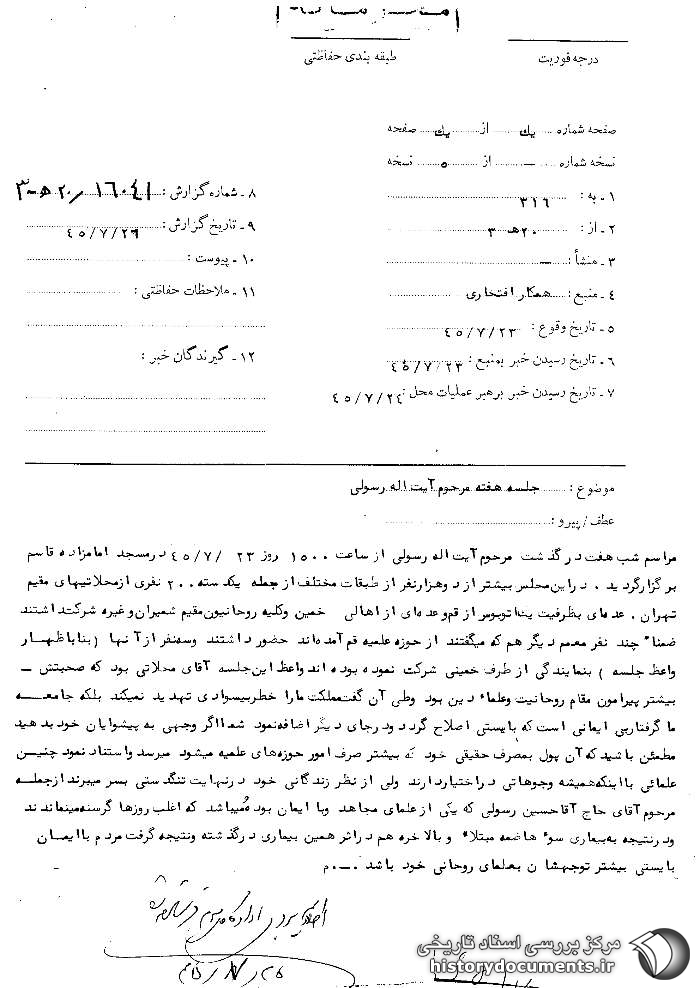 درجه فوریت
طبقه بندی حفاظتی
صفحه شماره یك از یك صفحه
نسخه شماره ــ از ٥ نسخه
۱ ـ به : ۳۱٦
۲ ـ از : ۲۰ هـ ۳
۳ ـ منشأ : ــ
٤ ـ منبع : همکار افتخاری
٥ ـ تاریخ وقوع : ٤٥/۷/۲۳
٦ ـ تاریخ رسیدن خبر بمنبع : ٤٥/۷/۲۳
۷ ـ تاریخ رسیدن خبر برهبر عملیات محل : ٤٥/۷/۲٤
۸ ـ شماره گزارش : ۱٦۰٤۱ / ۲۰ هـ ۳
۹ ـ تاریخ گزارش : ٤٥/۷/۲٦
۱۰ ـ پیوست :
۱۱ ـ ملاحظات حفاظتی :
۱۲ ـ گیرندگان خبر :
موضوع : جلسه هفته مرحوم آیت اله رسولی
عطف / پیرو :
مراسم شب هفت درگذشت مرحوم آیت اله رسولی از ساعت ۱٥۰۰ روز ۲۳ /۷/ ٤٥ درمسجد امامزاده قاسم
برگزارگردید . دراین مجلس بیشتر از دوهزارنفر از طبقات مختلف از جمله یکدسته ۲۰۰ نفری ازمحلاتیهای مقیم
تهران . عده ای بظرفیت یك اتوبوس از قم وعده ای از اهالی خمین وکلیه روحانیون مقیم شمیران وغیره شرکت داشتند
ضمناً چند نفر معمم دیگر هم که میگفتند از حوزه علمیه قم آمده اند حضور داشتند وسه نفر از آنها (بنا باظهار
واعظ جلسه ) بنمایندگی از طرف خمینی شرکت نموده بوده اند واعظ این جلسه آقای محلاتی بود که صحبتش ـ
بیشتر پیرامون مقام روحانیت وعلماء دین بود وطی آن گفت مملکت ما را خطر بیسوادی تهدید نمیکند بلکه جامعه
ما گرفتار بی ایمانی است که بایستی اصلاح گردد ودرجای دیگر اضافه نمود شما اگر وجهی به پیشوایان خود بدهید
مطمئن باشید که آن پول بمصرف حقیقی خود که بیشتر صرف امور حوزه های علمیه میشود میرسد واستناد نمود چنین
علمائی با اینکه همیشه وجوهاتی دراختیاردارند ولی از نظر زندگانی خود درنهایت تنگدستی بسر میبرند ازجمله
مرحوم آقای حاج آقا حسین رسولی که یکی از علمای مجاهد وبا ایمان بوده میباشد که اغلب روزها گرسنه میماندند
ودرنتیجه به بیماری سوء هاضمه مبتلاء و بالاخره هم دراثر همین بیماری درگذشته ونتیجه گرفت مردم با ایمان
بایستی بیشتر توجهشان بعلمای روحانی خود باشد . ــ . م
مرکز بررسی اسناد تاریخی
historydocuments.ir